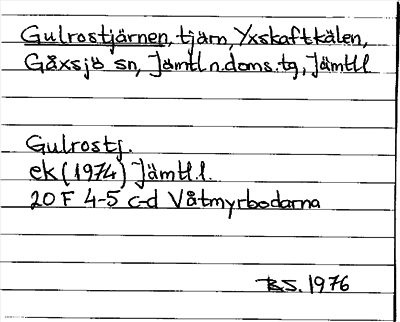 Gulrostjärnen, tjärn, Yxskaftkälen,
Gåxsjö sn, Jämtl.n.doms.tg, Jämtl.l
Gulrostj.
ek (1974) Jämtl.l.
20 F 4-5 c-d Våtmyrbodarna
B.S. 1976